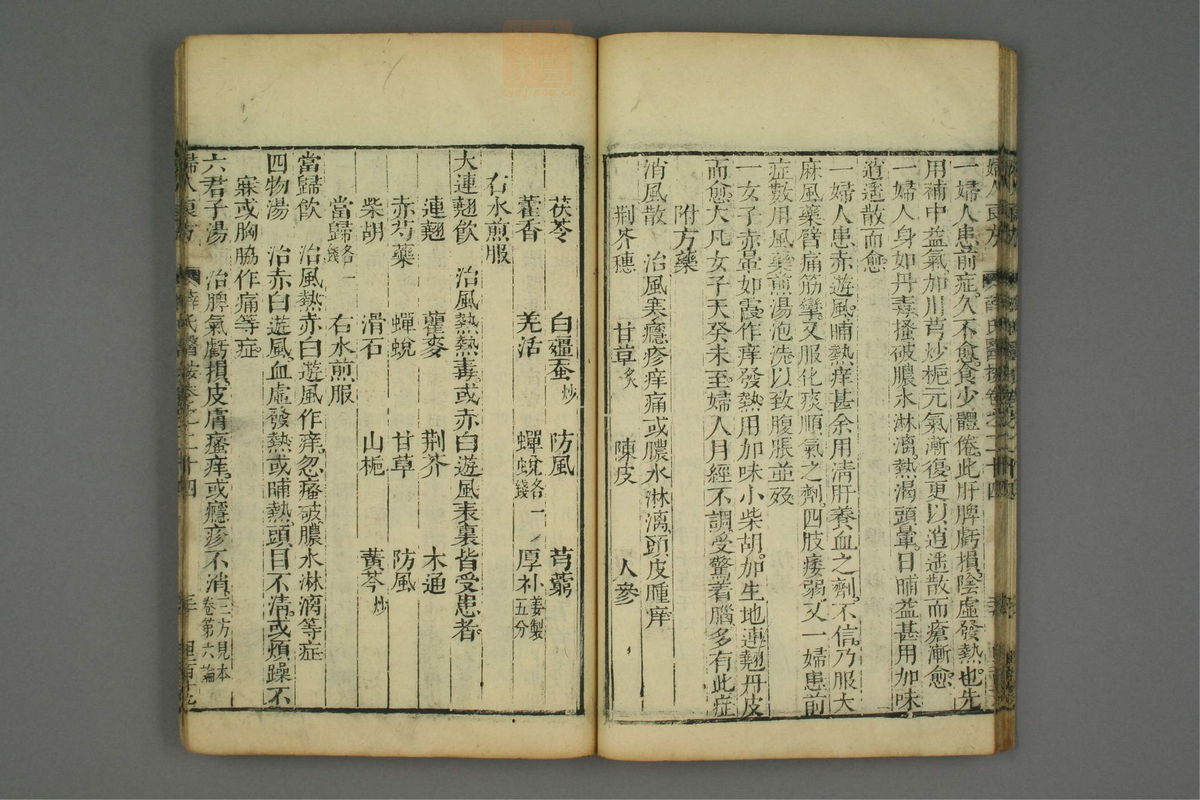 一婦人患前症久不愈食少體倦此肝脾虧損陰虛發熱也先
用補中益氣加川芎炒梔元氣漸復更以逍遙散而瘡漸愈
一婦人身如丹毒搔破膿水淋漓熱渴頭暈日晡益甚用加味
逍遙散而愈
一婦人患赤遊風晡熱痒甚余用清肝養血之劑不信乃服大
麻風藥臂痛筋攣又服化痰順氣之劑四肢痿弱又一婦患前
症數用風藥煎湯泡洗以致腹脹並歿
一女子赤暈如霞作痒發熱用加味小柴胡加生地連翹丹皮
而愈大凡女子天癸未至婦人月經不調受驚着腦多有此症
附方藥
消風散　治風寒癮疹痒痛或膿水淋漓頭皮腫痒
荆芥穗　甘草炙　陳皮　人參
茯苓　白殭蚕炒　防風　芎藭
藿香　羌活　蟬蛻各一錢　厚朴姜製五分
右水煎服
大連翹飲　治風熱熱毒或赤白遊風表裏皆受患者
連翹　瞿麥　荆芥　木通
赤芍藥　蟬蛻　甘草　防風
柴胡　滑石　山梔　黃芩炒
當歸各一錢　右水煎服
當歸飲　治風熱赤白遊風作痒忽瘙破膿水淋漓等症
四物湯　治赤白遊風血虛發熱或晡熱頭目不清或煩躁不
寐或胸脇作痛等症
六君子湯　治脾氣虧損皮膚瘙痒或癮疹不消三方見本卷第六論
婦人良方　薛氏醫按卷之二十四